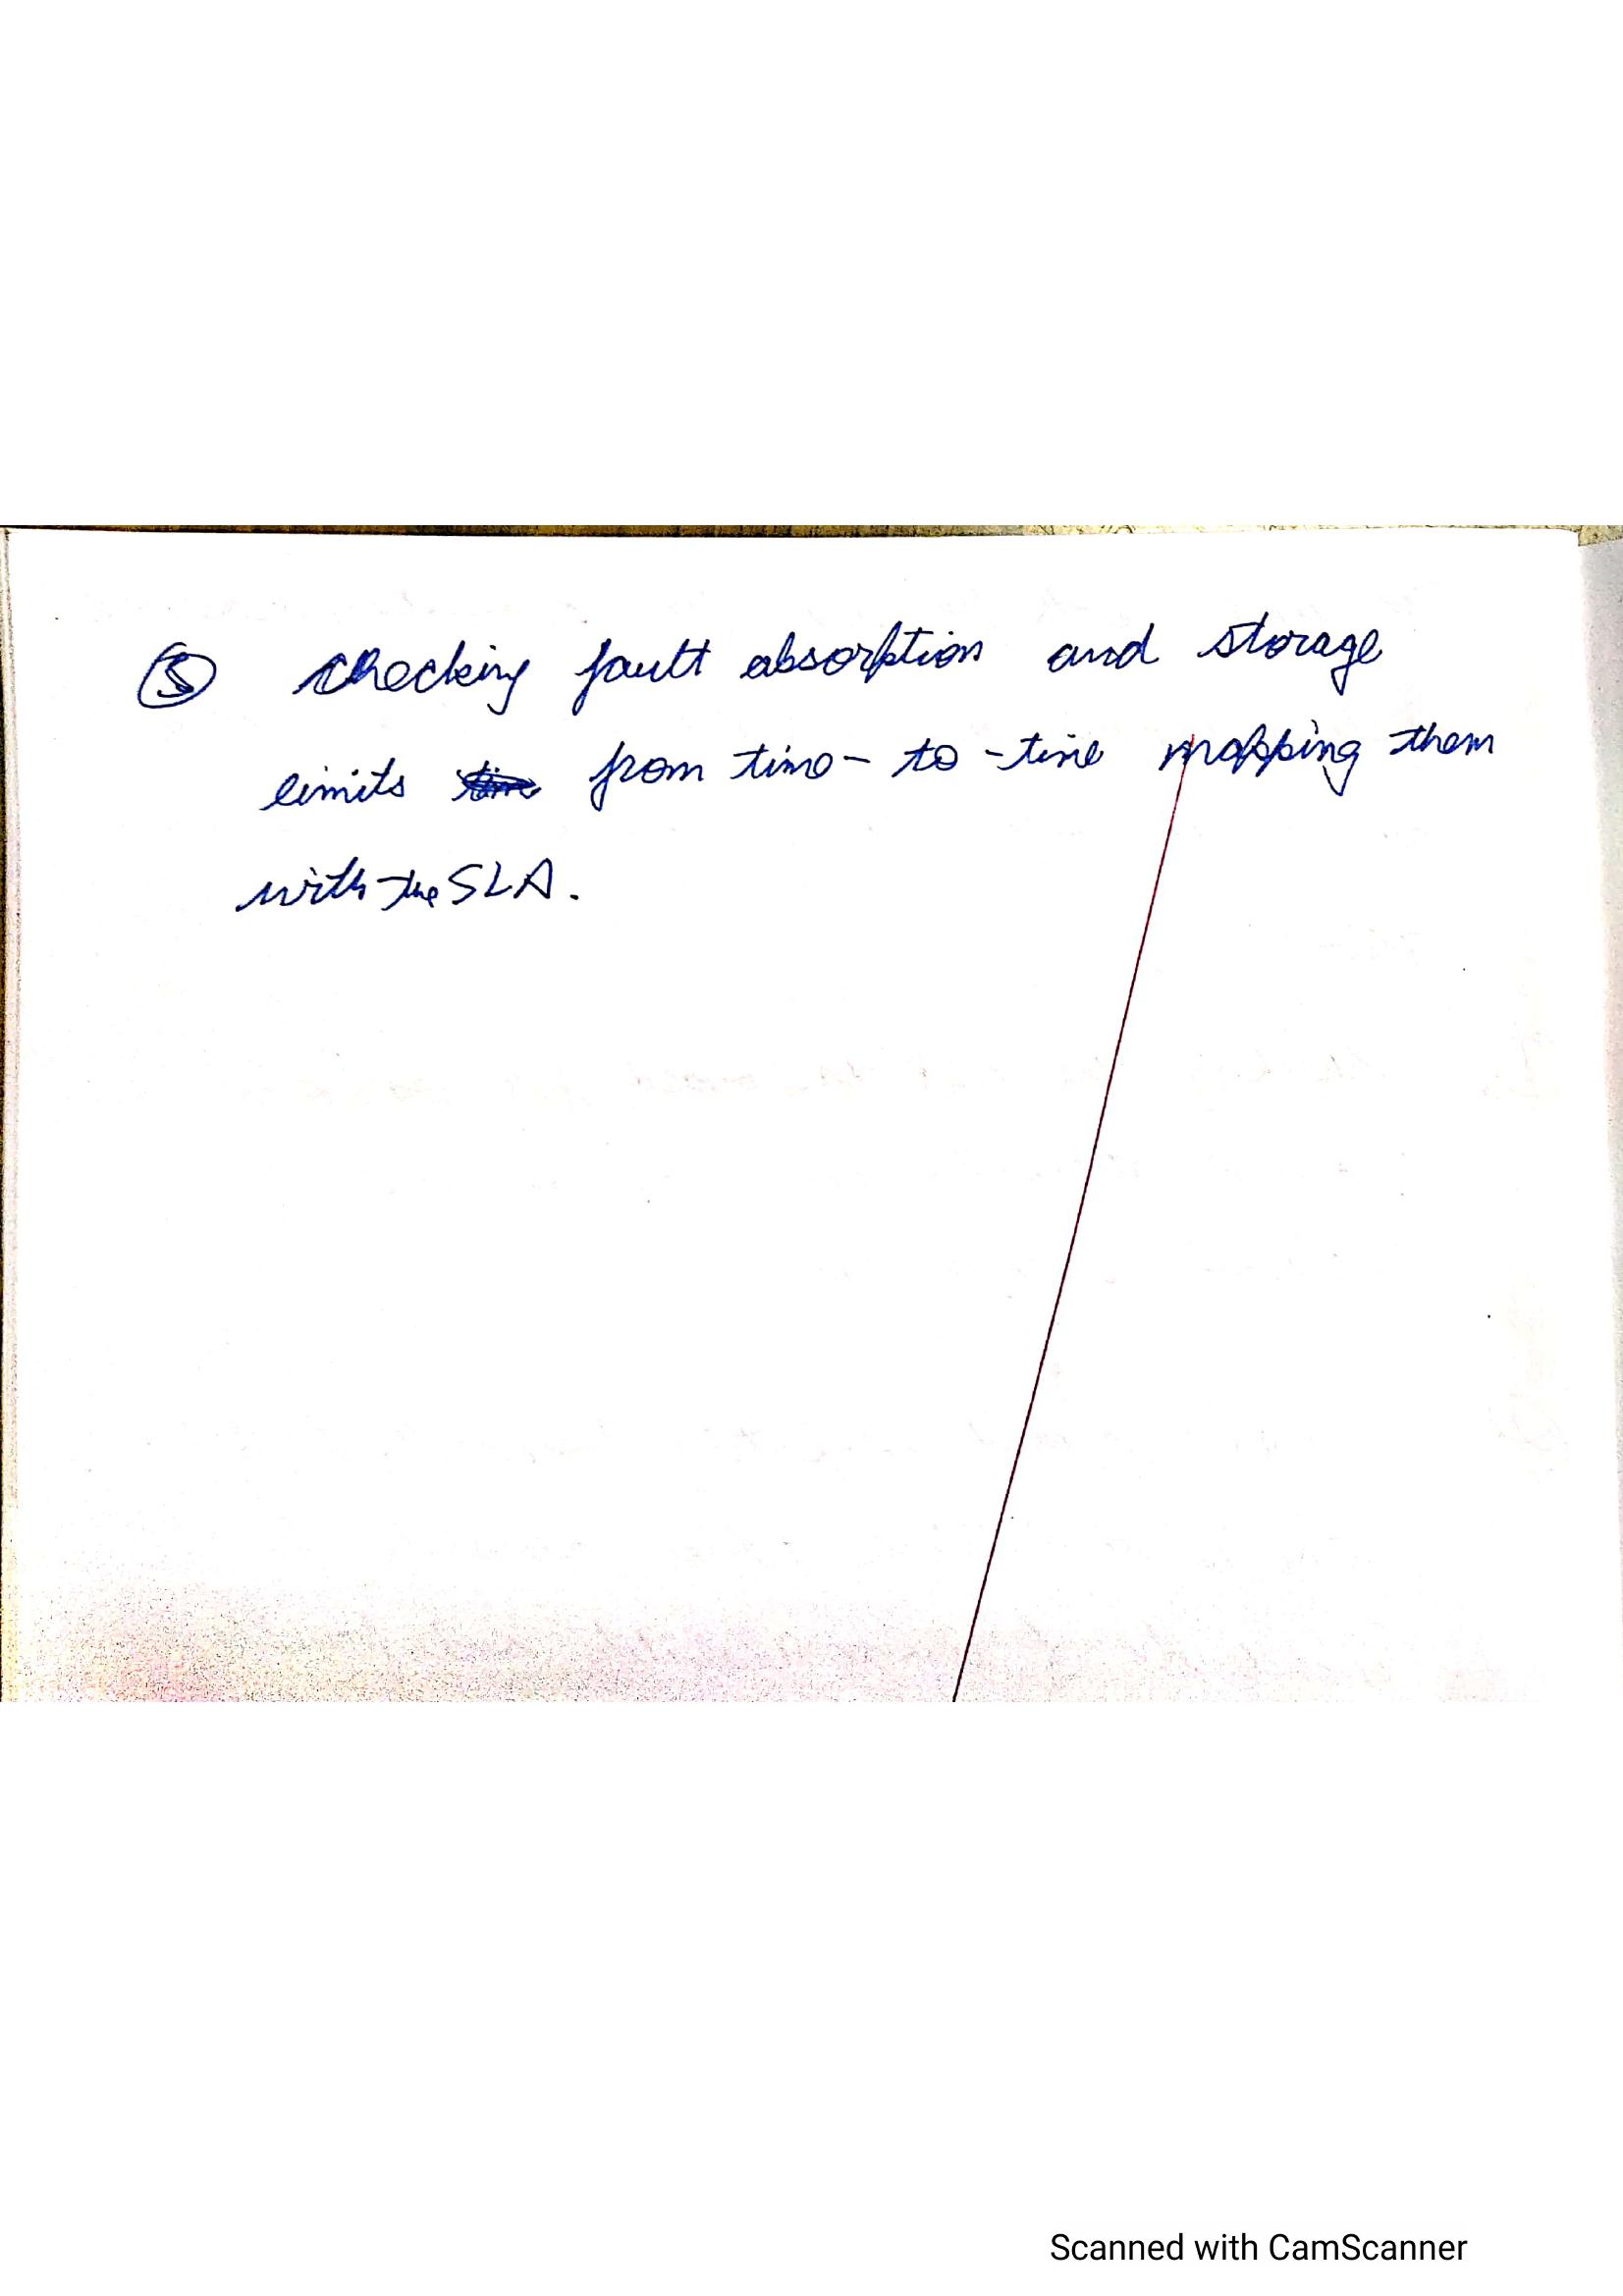 ⑤ checking fault absorption and storage
limits from time-to-time mapping them
with the SLA.
Scanned with CamScanner